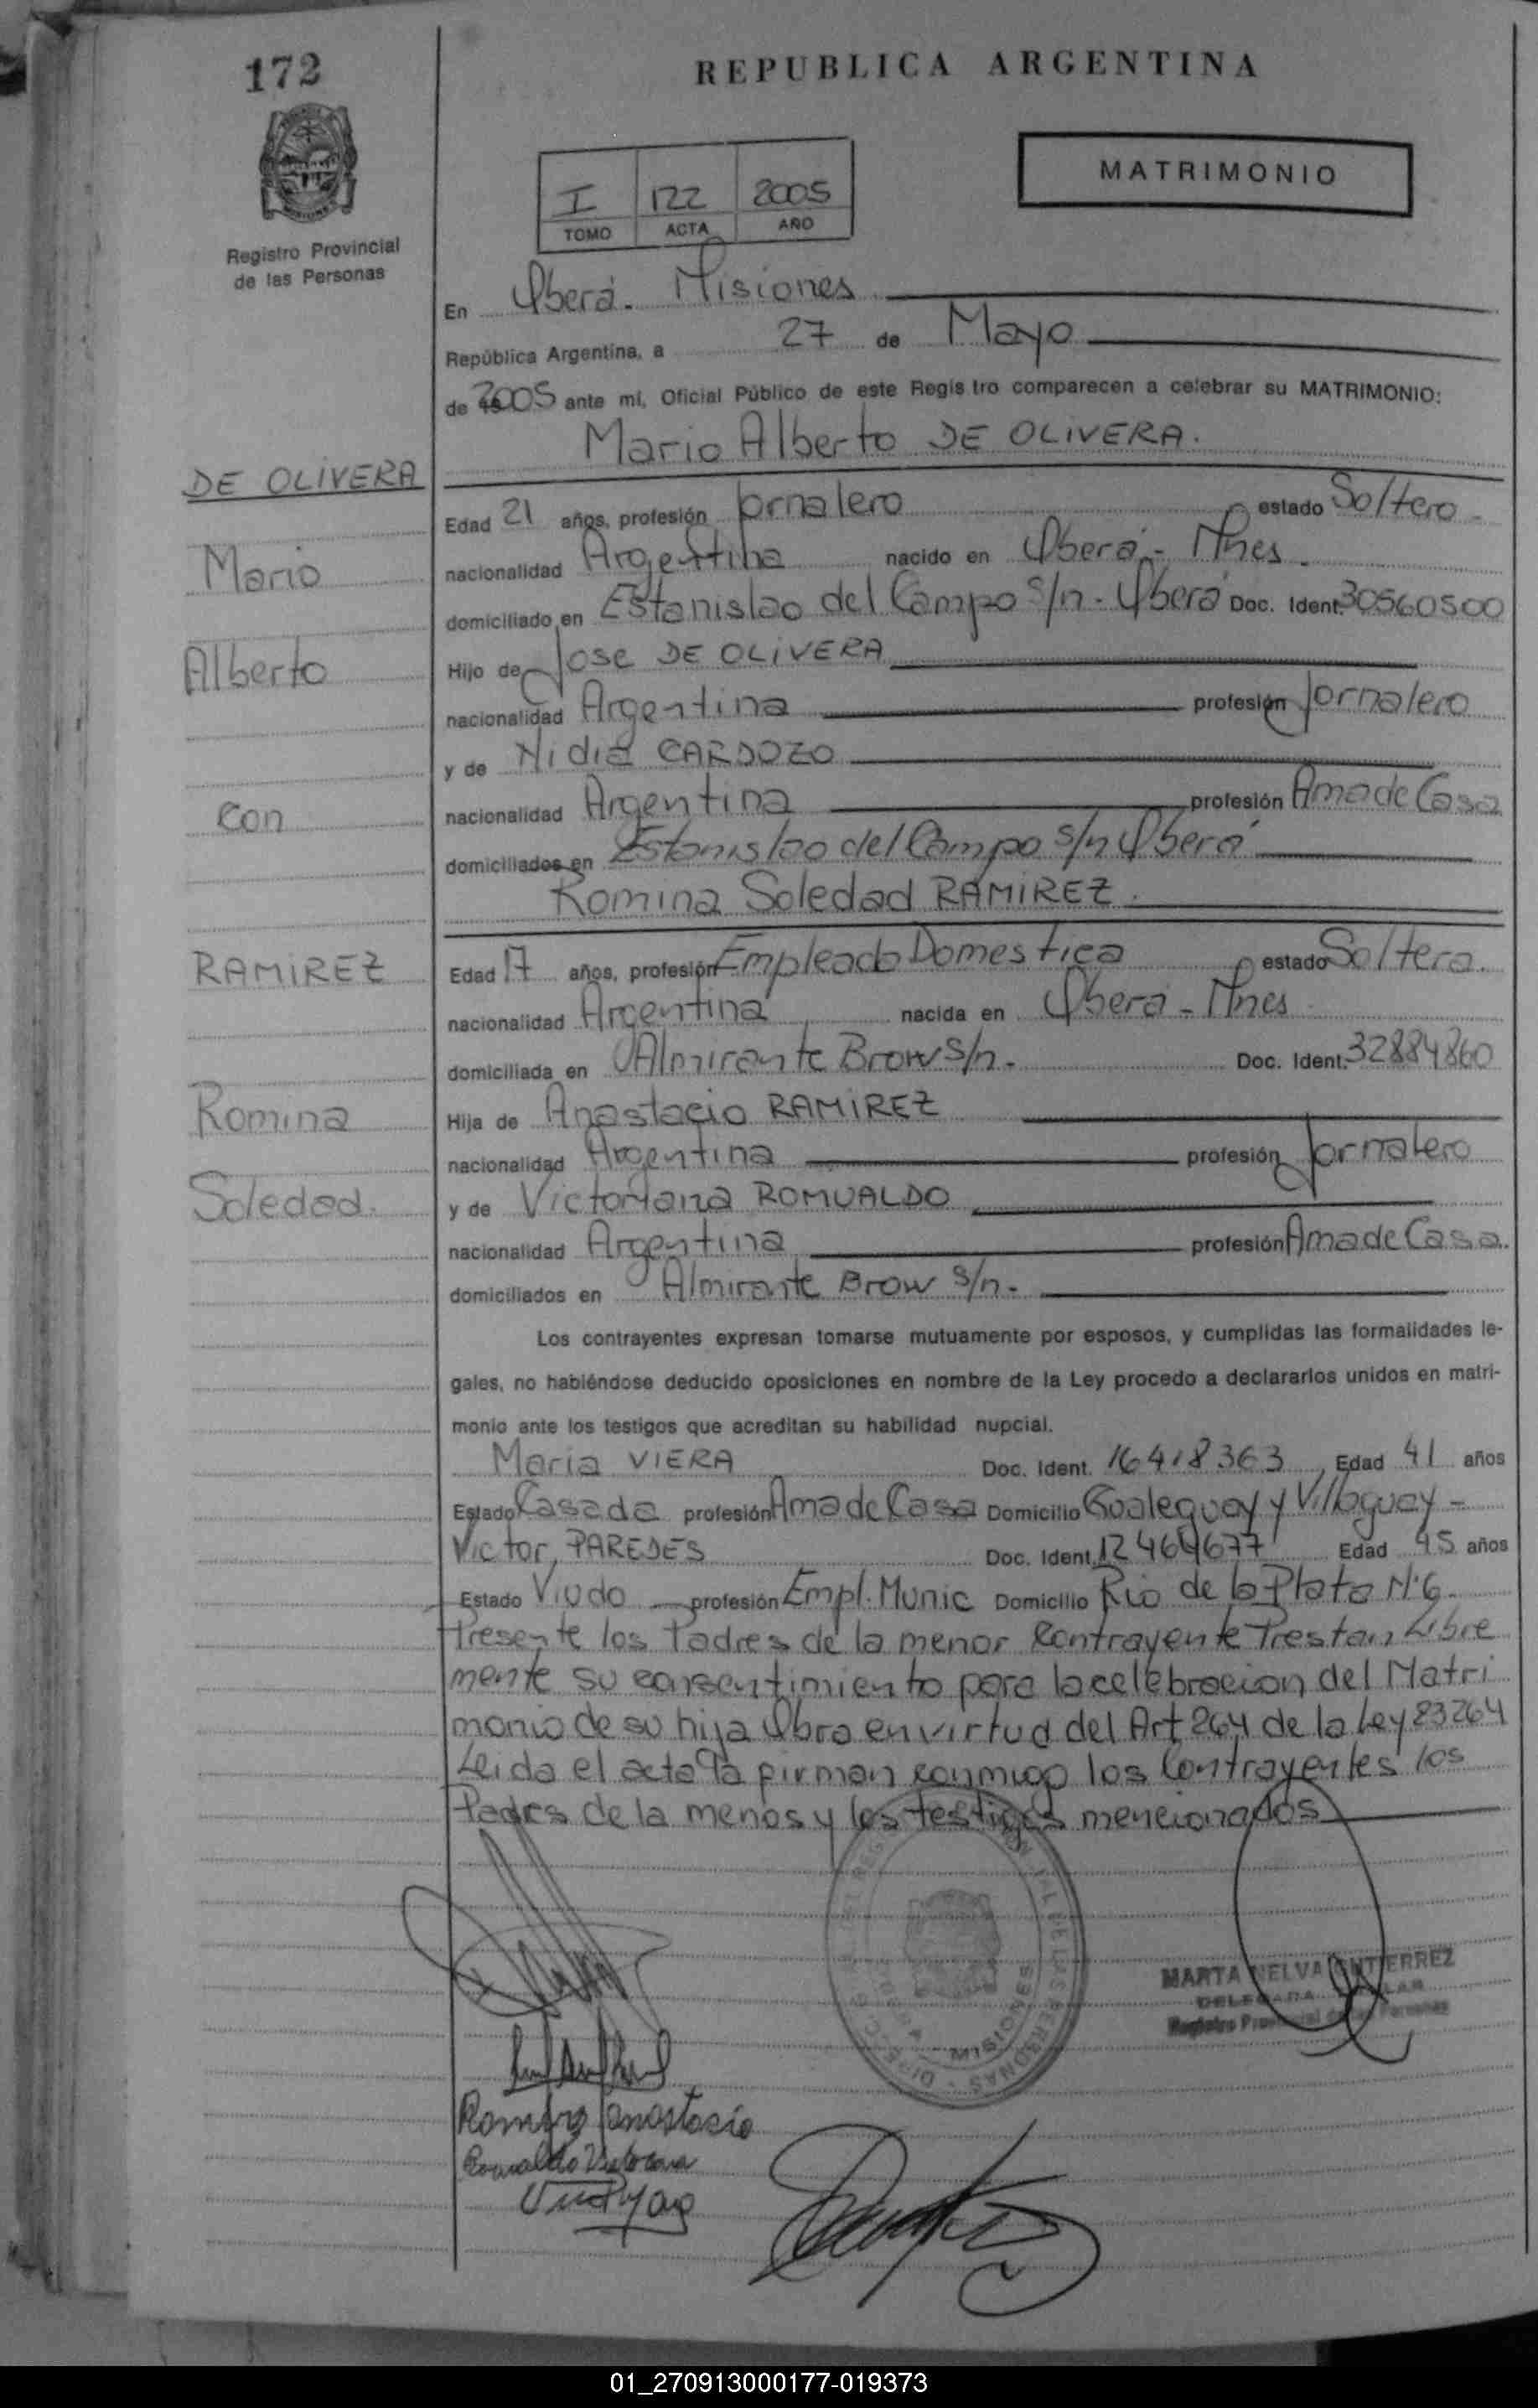 172
REPUBLICA ARGENTINA
MATRIMONIO
I 122 2005
TOMO ACTA AÑO
Registro Provincial
de las Personas
En Oberá. Misiones
República Argentina, a 27 de Mayo
de 2005 ante mí, Oficial Público de este Registro comparecen a celebrar su MATRIMONIO:
Mario Alberto DE OLIVERA.
DE OLIVERA
Edad 21 años, profesión Jornalero estado Soltero.
Mario
nacionalidad Argentina nacido en Oberá - Mnes.
domiciliado en Estanislao del Campo s/n. Oberá Doc. Ident. 30560500
Alberto
Hijo de Jose DE OLIVERA
nacionalidad Argentina profesión Jornalero
y de Nidia CARDOZO
nacionalidad Argentina profesión Ama de Casa
con
domiciliados en Estanislao del Campo s/n Oberá
Romina Soledad RAMIREZ.
RAMIREZ
Edad 17 años, profesión Empleada Domestica estado Soltera.
nacionalidad Argentina nacida en Oberá - Mnes
domiciliada en Almirante Brow s/n. Doc. Ident. 32884860
Romina
Hija de Anastacio RAMIREZ
nacionalidad Argentina profesión Jornalero
Soledad.
y de Victoriana ROMUALDO
nacionalidad Argentina profesión Ama de Casa.
domiciliados en Almirante Brow s/n.
Los contrayentes expresan tomarse mutuamente por esposos, y cumplidas las formalidades le-
gales, no habiéndose deducido oposiciones en nombre de la Ley procedo a declararlos unidos en matri-
monio ante los testigos que acreditan su habilidad nupcial.
Maria VIERA Doc. Ident. 16418363 Edad 41 años
Estado Casada profesión Ama de Casa Domicilio Gualeguay y Villaguay -
Victor PAREDES Doc. Ident. 12464677 Edad 45 años
Estado Viudo profesión Empl. Munic Domicilio Rio de la Plata N° 6.
Presente los Padres de la menor Contrayente Prestan Libre
mente su consentimiento para la celebracion del Matri
monio de su hija Obra en virtud del Art 264 de la Ley 23264
Leida el acta la firman conmigo los Contrayentes los
Padres de la menos y los testigos mencionados
MARTA NELVA GUTIERREZ
DELEGADA TITULAR
Registro Provincial de las Personas
MISIONES
anastacio
01_270913000177-019373